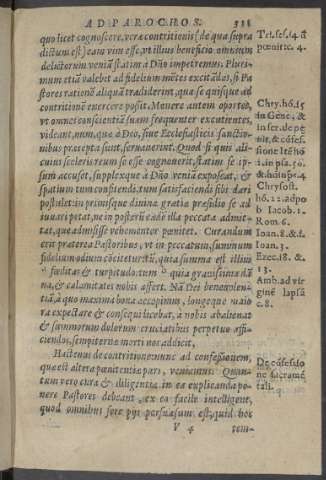 AD PAROCHOS. 311
quo licet cognoscere, vera contritionis (de qua supra
dictum est) eam vim esse, vt illius beneficio omnium
delictorum veniā statim à Dño impetremus. Pluri-
mum etiā valebit ad fidelium mētes excitādas, si Pa
stores rationē aliquā tradiderint, qua se quisque ad
contritionē exercere possit. Monere autem oportet,
vt omnes conscientiā suam frequenter excutientes,
videant, num, quæ à Deo, siue Ecclesiasticis sanctio-
nibus præcepta sunt, seruauerint. Quod si quis ali-
cuius sceleris reum se esse cognouerit, statim se ip-
sum accuset, supplexque à Dño veniā exposcat, &
spatium tum confitendi, tum satisfaciendi sibi dari
postulet: in primisque diuinæ gratiæ præsidio se ad
iuuari petat, ne in posterū eadē illa peccata admit-
tat, quæ admisisse vehementer pœnitet. Curandum
erit præterea Pastoribus, vt in peccatum, summum
fidelium odium cōcitetur: tū, quia summa est illius
fœditas & turpitudo: tum quia grauissima dā
na, & calamitates nobis affert. Nā Dei beneuolen-
tiā, à quo maxima bona accepimus, longeque maio
ra expectare & consequi licebat, à nobis abalienat
& summorum dolorum cruciatibus perpetuo affi-
ciendos, sempiternæ morti nos addicit.
Hactenus de contritione: nunc ad confessionem,
quæ est altera pœnitentiæ pars, veniamus. Quan-
tum vero curæ & diligentiæ in ea explicanda po-
nere Pastores debeant, ex eo facile intelligent,
quod omnibus fere pijs persuasum est, quid hoc
V 4 tem-
Tri. ses. 14. &
pœnit. c. 4.
Chry. hō. 15
in Gene. &
in ser. de pe
nit. & cōfes-
sione Itē hō
i. in psa. 50.
& homi. psa. 4
Chrysost.
hō. 22. ad po
b Iacob. 1.
Rom. 6.
Ioan. 8. & 1.
Ioan. 3.
Ezec. 18. &
13.
Amb. ad vir
ginē lapsā
c. 8.
De cōfessio
ne sacramē
tali.